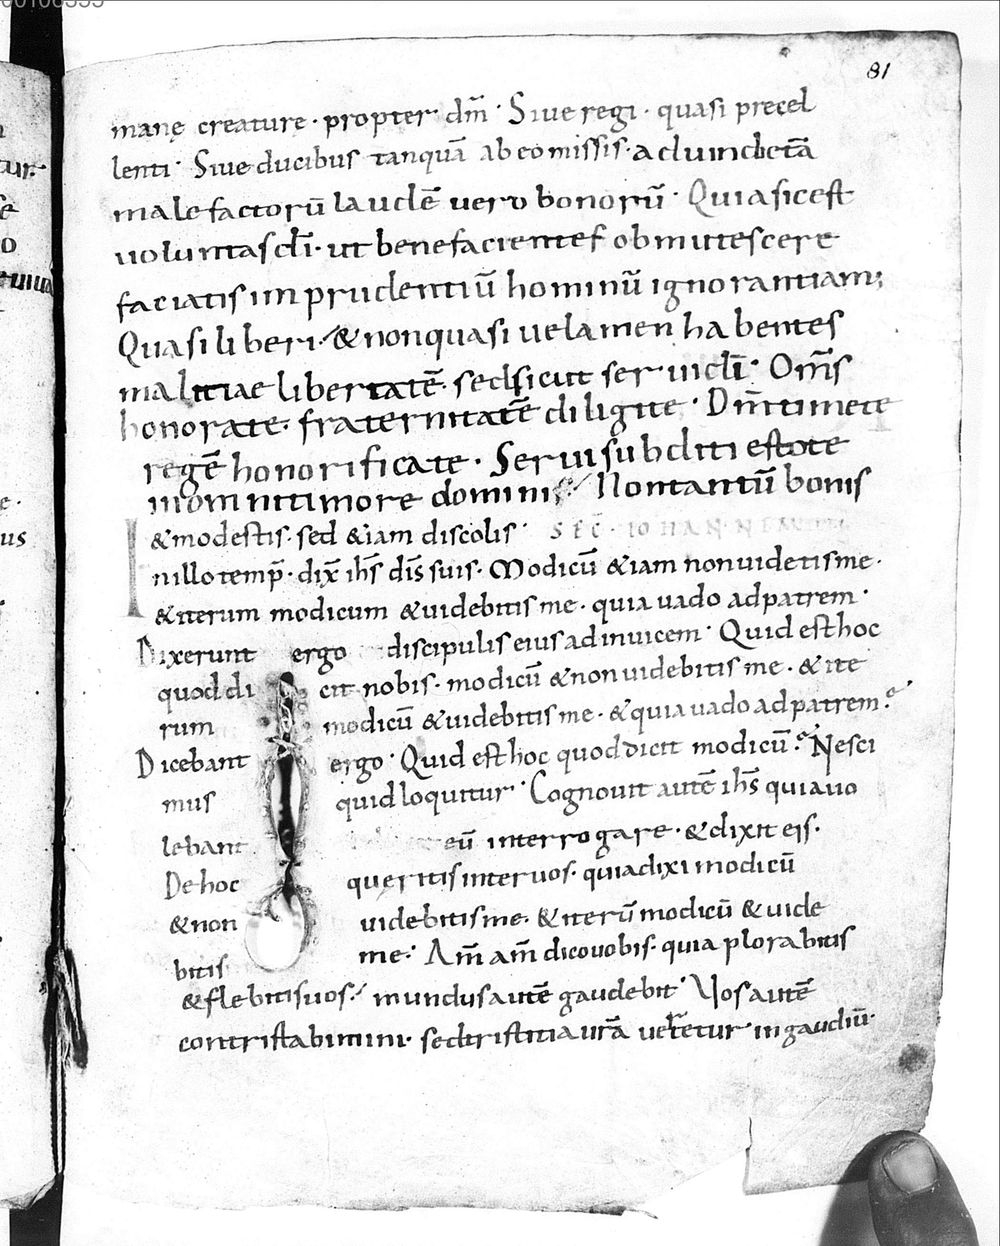 81
manę creature · propter dm̄ · Siue regi · quasi precel
lenti · Siue ducibus tanquā ab eo missis · ad uindictā
malefactorū laudē uero bonorū · Quia sic est
uoluntas dī · ut benefacientes obmutescere
faciatis imprudentiū hominū ignorantiam;
Quasi liberi · & non quasi uelamen habentes
malitiae libertatē · sed sicut serui dī · Om̄s
honorate · fraternitatē diligite · Dm̄ timete
regē honorificate · Serui subditi estote
in omni timore dominis · Non tantū bonis
& modestis · sed &iam discolis · SEC̄ · IOHANNEM
In illo temp̄ · dix̄ ihs̄ dis̄ suis · Modicū &iam non uidetis me ·
& iterum modicum & uidebitis me · quia uado ad patrem ·
Dixerunt ergo discipulis eius ad inuicem · Quid est hoc
quod di cit nobis · modicū & non uidebitis me · & ite
rum modicū & uidebitis me · & quia uado ad patrem ·
Dicebant ergo · Quid est hoc quod dicit modicū · Nesci
mus quid loquitur · Cognouit autē ihs̄ quia uo
lebant eū interrogare · & dixit eis ·
De hoc queritis inter uos · quia dixi modicū
& non uidebitis me · & iterū modicū & uide
bitis me · Am̄ am̄ dico uobis · quia plorabitis
& flebitis uos · mundus autē gaudebit · Vos autē
contristabimini · sed tristitia urā uertetur in gaudiū ·